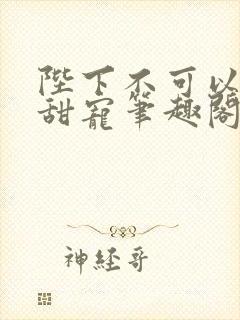 陛下不可以
甜寵筆趣閣
神經哥